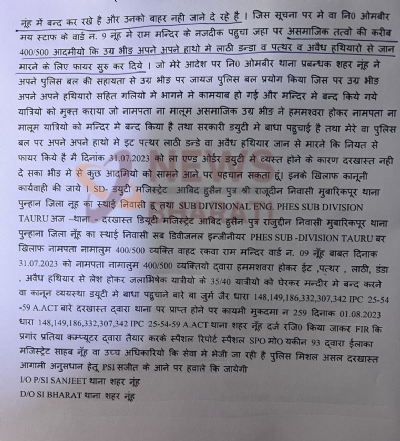 नूंह में बन्द कर रखे है और उनको बाहर नही जाने दे रहे है । जिस सूचना में वा नि0 ओमबीर
मय स्टाफ के वार्ड न. 9 नूंह में राम मन्दिर के नजदीक पहुचा जहा पर असमाजिक तत्वो की करीब
400/500 आदमीयो कि उग्र भीड अपने अपने हाथो मे लाठी डन्डा व पत्थर व अवैध हथियारो से जान
मारने के लिए फायर सुरु कर दिये । जो मेरे आदेश पर नि0 ओमबीर थाना प्रबन्धक शहर नूंह ने
अपने पुलिस बल की सहायता से उग्र भीड पर जायज पुलिस बल प्रयोग किया जिस पर उग्र भीड
अपने अपने हथियारो सहित गलियो में भागने मे कामयाब हो गई और मन्दिर मे बन्द किये गये
यात्रियो को मुक्त कराया जो नामपता ना मालूम असमाजिक उग्र भीड ने हममश्वरा होकर नामपता ना
मालूम यात्रियो को मन्दिर मे बन्द किया है तथा सरकारी डयुटी मे बाधा पहुचाई है तथा मेरे वा पुलिस
बल पर अपने अपने हाथो मे इट पत्थर लाठी डन्डे वा अवैध हथियार जान से मारने कि नियत से
फायर किये है मै दिनांक 31.07.2023 को ला एण्ड ओर्डर डयुटी मे व्यस्त होने के कारण दरखास्त नही
दे सका भीड मे से कुछ आदमीयो को सामने आने पर पहचान सकता हूं। इनके खिलाफ कानूनी
कार्यवाही की जाये । SD- डयुटी मजिस्ट्रेट आबिद हुसैन पुत्र श्री राजूदीन निवासी मुबारिकपूर थाना
पुन्हाना जिला नूंह का स्थाई निवासी हू तथा SUB DIVISIONAL ENG. PHES SUB DIVISION
TAURU अज -थाना- दरखास्त डियूटी मजिस्ट्रेट आबिद हुसैन पुत्र राजुद्दीन निवासी मुबारिकपूर थाना
पुन्हाना जिला नूंह का स्थाई निवासी सब डिवीजनल इन्जीनीयर PHES SUB -DIVISION TAURU बर
खिलाफ नामपता नामालुम 400/500 व्यक्ति वाहद रकवा राम मन्दिर वार्ड न. 09 नूंह बाबत दिनाक
31.07.2023 को नामपता नामालुम 400/500 व्यक्तियो द्वारा हममशवरा होकर ईट ,पत्थर , लाठी, डंडा
, अवैध हथियार से लेश होकर जलाभिषेक यात्रीयो के 35/40 यात्रीयो को घेरकर मन्दीर मे बन्द करने
वा कानून व्यवस्था डयूटी मे बाधा पहुचाने बारे बा जुर्म जैर धारा 148,149,186,332,307,342 IPC 25-54
-59 A.ACT बारे दरखास्त द्वारा थाना पर प्राप्त होने पर कायमी मुकदमा न 259 दिनाक 01.08.2023
धारा 148,149,186,332,307,342 IPC 25-54-59 A.ACT थाना शहर नूंह दर्ज रजि0 किया जाकर FIR कि
प्रगांर प्रतिया कम्प्यूटर द्वारा तैयार करके स्पैशल रिपोर्ट स्पैशल SPO मो0 यकीन 93 द्वारा ईलाका
मजिस्ट्रेट साहब नूँह वा उच्च अधिकारियो कि सेवा मे भेजी जा रही है पुलिस मिशल असल दरखास्त
आगामी अनुसधान हेतू PSI सजीत के आने पर हवाले कि जायेगी
I/O P/SI SANJEET थाना शहर नूंह
D/O SI BHARAT थाना शहर नूंह